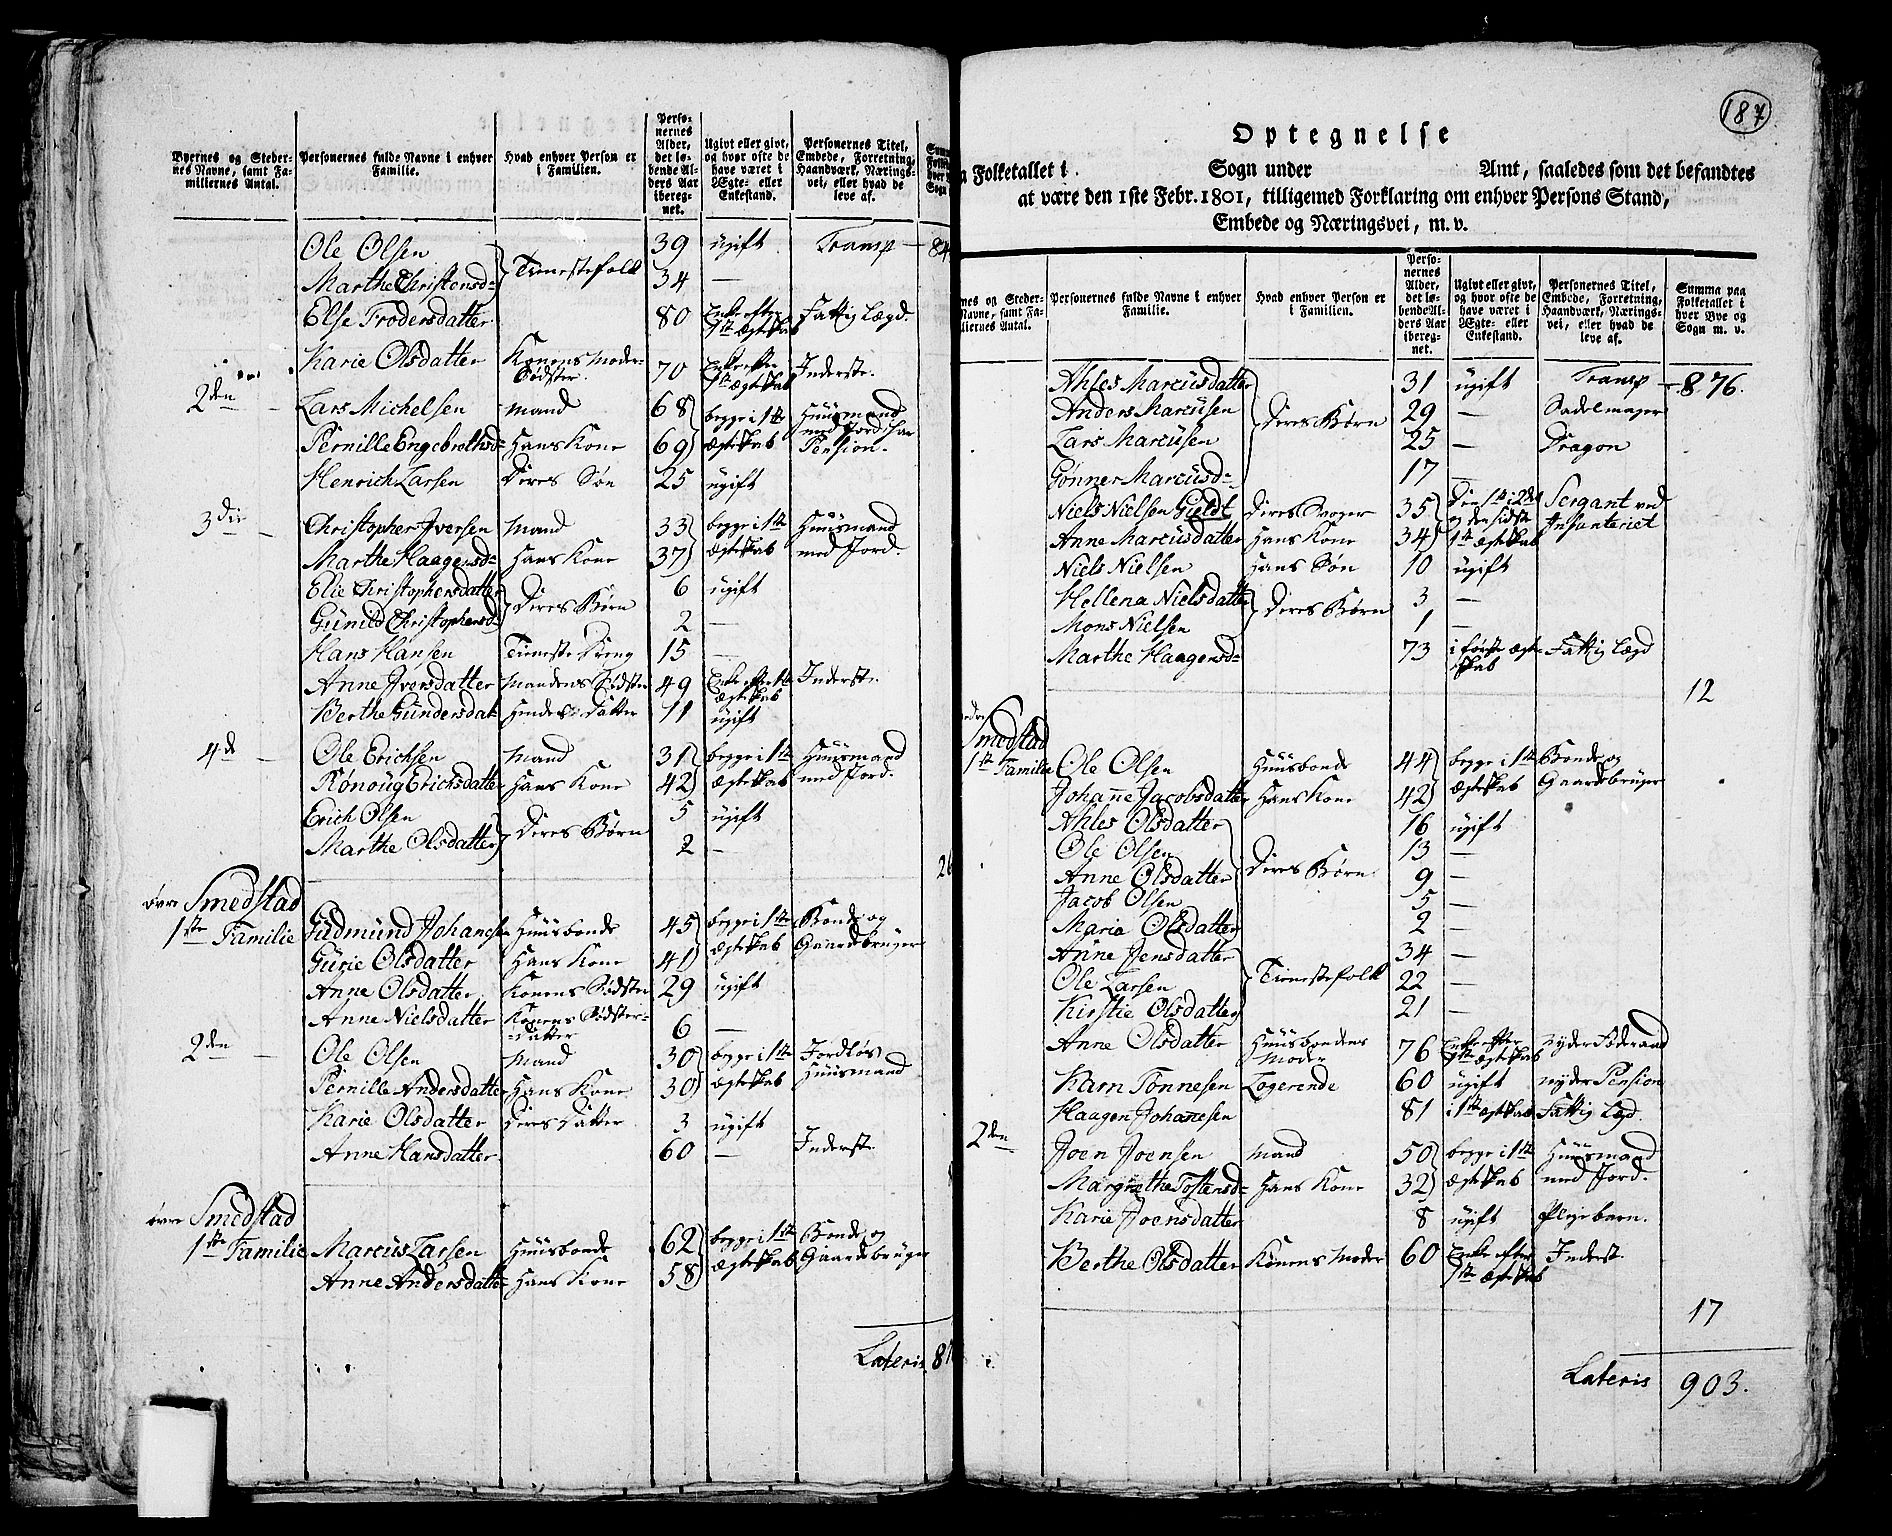 Byernes og Steder-
nes Navne, samt Fa-
miliernes Antal.
Personernes fulde Navne i enhver
Familie.
Hvad enhver Person er
i Familien.
Perso-
nernes
Alder,
det lø-
bende Al-
ders Aar
iberegnet.
Ugivt eller givt,
og hvor ofte de
have været i
Ægte- eller
Enkestand.
Personernes Titel,
Embede, Forretning,
Haandværk, Nærings-
vei, eller hvad de
leve af.
Ole Olsen 39 ugift Transp
Marthe Christensd= Tienestefolk 34 —
Else Frodersdatter 80 Enke efter 1ste ægteskab Fattig Lægd.
Karie Olsdatter Konens Moder-Södster. 70 Enke efter 1ste ægteskab Inderste.
2den — Lars Michelsen Mand 68 begge i 1ste Huusmand
Pernille Engebrethsd= Hans Kone 69 ægteskab med Jord har Pension.
Henrich Larsen Deres Søn 25 ugift
3die — Christopher Iversen Mand 33 begge i 1ste Huusmand
Marthe Haagensd= Hans Kone 37 ægteskab med Jord.
Elie Christophersdatter 6 ugift
Gunild Christophersd= Deres Børn 2 —
Hans Hansen Tieneste Dreng 15 —
Anne Iversdatter Mandens Södster 49 Enke efter 1ste ægteskab Inderste.
Berthe Gundersdat= Hendes Datter 11 ugift
4de — Ole Erichsen Mand 31 begge i 1ste Huusmand
Rönoug Erichsdatter Hans Kone 42 ægteskab med Jord.
Erich Olsen 5 ugift
Marthe Olsdatter Deres Børn 2 —
26
øvre Smedstad
1ste Familie Gudmund Johannesen Huusbonde 45 begge i 1ste Bonde og
Gurie Olsdatter Hans Kone 41 ægteskab Gaardebruger
Anne Olsdatter Konens Södster 29 ugift
Anne Nielsdatter Konens Södster-Datter 6 —
2den — Ole Olsen Mand 30 begge i 1ste Jordløs
Pernille Andersdatter Hans Kone 30 ægteskab Huusmand
Karie Olsdatter Deres Datter 3 ugift
Anne Hansdatter 60 — Inderste
øvre Smedstad
1ste Familie Marcus Larsen Huusbonde 62 begge i 1ste Bonde og
Anne Andersdatter Hans Kone 58 ægteskab Gaardebruger
Lateris
187
Optegnelse
Folketallet i Sogn under Amt, saaledes som det befandtes
at være den 1ste Febr. 1801, tilligemed Forklaring om enhver Persons Stand,
Embede og Næringsvei, m. v.
Personernes fulde Navne i enhver
Familie.
Hvad enhver Person er
i Familien.
Perso-
nernes
Alder,
det lø-
bende Al-
ders Aar
iberegnet.
Ugivt eller givt,
og hvor ofte de
have været i
Ægte- eller
Enkestand.
Personernes Titel,
Embede, Forretning,
Haandværk, Nærings-
vei, eller hvad de
leve af.
Summa paa
Folketallet i
hver Bye og
Sogn m. v.
Ahles Marcusdatter 31 ugift Transp — 876.
Anders Marcusen Deres Børn 29 — Sadelmager
Lars Marcusen 25 — Dragon
Gønner Marcusd= 17 —
Niels Nielsen Gieldt Deres Svoger 35 Sergant ved
Anne Marcusdatter Hans Kone 34 1ste ægteskab Infanteriet
Niels Nielsen Hans Søn 10 ugift
Hellena Nielsdatter Deres Børn 3 —
Mons Nielsen 1 —
Marthe Haagensd= 73 i første ægteskab Fattig Lægd
12
Smedstad
1ste Familie Ole Olsen Huusbonde 44 begge i 1ste Bonde og
Johanne Jacobsdatter Hans Kone 42 ægteskab Gaardebruger
Ahles Olsdatter 16 ugift
Ole Olsen 13 —
Anne Olsdatter Deres Børn 9 —
Jacob Olsen 5 —
Marie Olsdatter 2 —
Anne Jensdatter 34 —
Ole Larsen Tienestefolk 22 —
Kirstie Olsdatter 21 —
Anne Olsdatter Huusbondens Moder 76 Enke efter 1ste ægteskab nyder Föderaad
Karn Tonnesen Logerende 60 ugift nyder Pension
Haagen Johannesen 81 i 1ste ægteskab Fattig Lægd.
2den Joen Joensen Mand 50 begge i 1ste Huusmand
Margrethe Tostensd= Hans Kone 32 ægteskab med Jord.
Karie Joensdatter 8 ugift Pleiebarn.
Berthe Olsdatter Konens Moder 60 Enke efter 1ste ægteskab Inderst
17
Lateris 903.